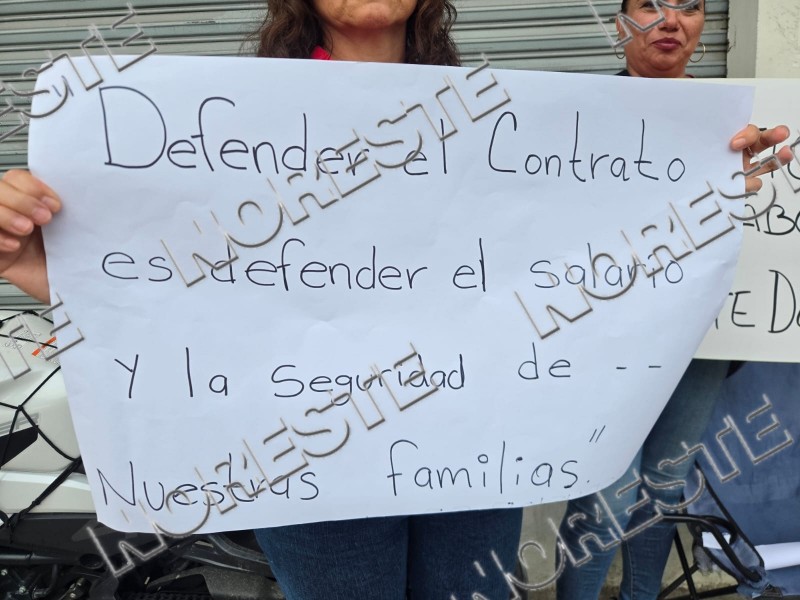 Defender el Contrato
es defender el salario
Y la seguridad de --
Nuestras familias."
ABO
TE D
NORESTE
NORESTE
NORESTE
NORESTE
NORESTE
NORESTE